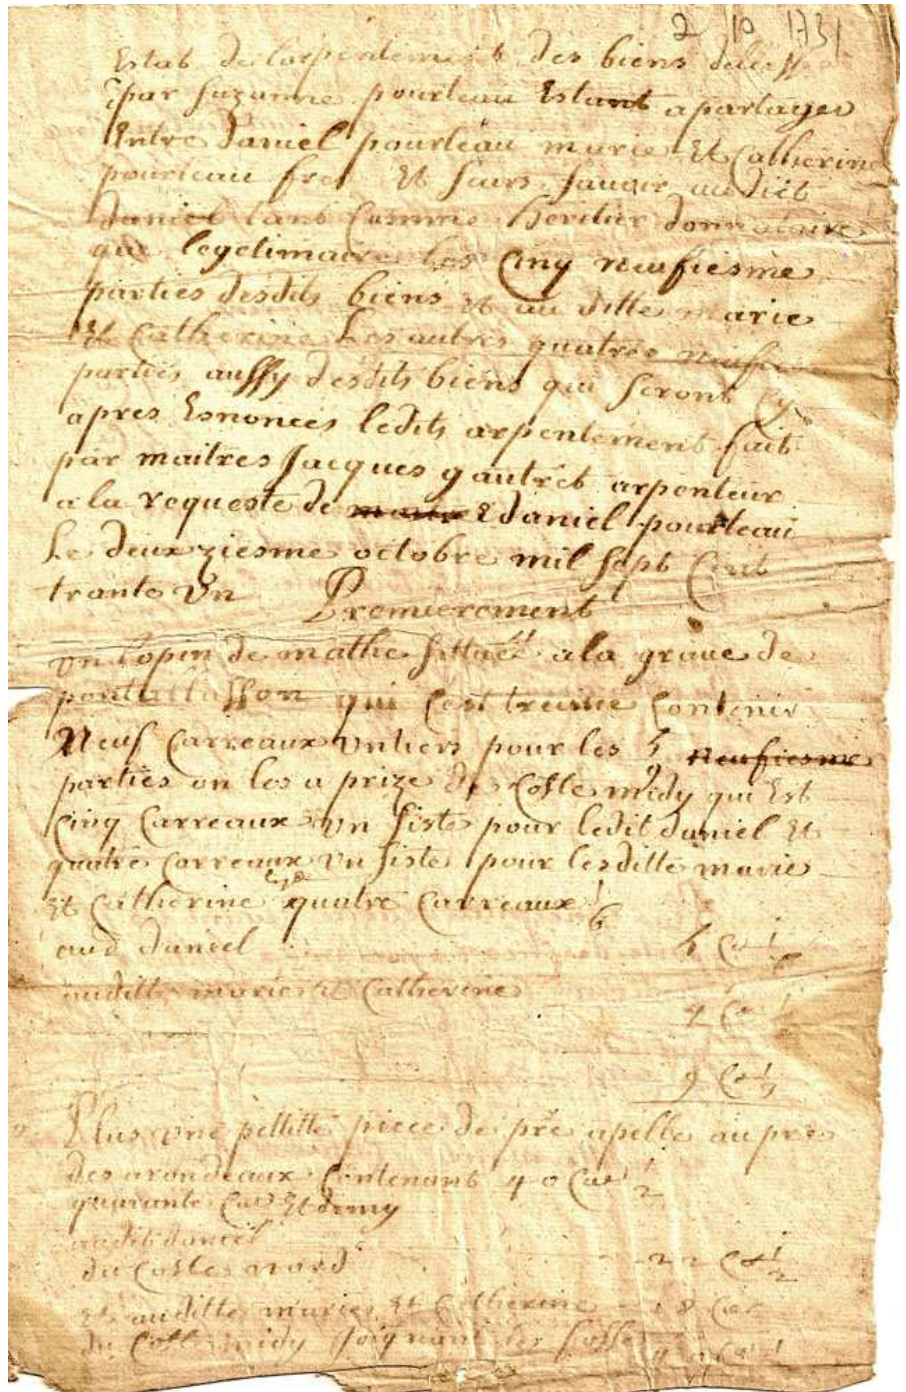 2 10 1731
Estat de l'arpentement des biens delesse
par Suzanne pourteau Estant a partager
Entre daniel pourteau marie Et Catherine
pourteau fre Et seurs savoir audict
daniel tant Comme heritier donnataire
que legetimaire les Cinq neufiesme
parties desdits biens et au ditte marie
Et Catherine les autres quatres neufie
parties aussy desdits biens qui seront Cy
apres Esnoncés ledits arpentement fait
par maitres Jacques gautret arpenteur
a la requeste de daniel pourteau
Le deuxziesme octobre mil sept Cent
trante un Premierement
un lopin de mathe sittué a la grave de
qui C'est treuvé Contenir
Neuf Carreaux un tiers pour les 5/9 Neufiesme
parties on les a prize du Coste midy qui Est
Cinq Carreaux un siste pour ledit daniel Et
quatre Carreaux un siste pour lesditte marie
Et Catherine quatre Carreaux 1/6
aud daniel 5 Ca 1/6
auditte marie et Catherine 4 Ca 1/6
9 Ca 1/3
Plus une pettitte piece de pré apelle au pré
des arondeaux Contenant 40 Cax 1/2
quarante Cax Et demy
audit daniel
du Coste nord 22 Ca 1/2
Et auditte marie Et Catherine 18 Cax
du Coste midy Joignant les fosse
40 Ca 1/2